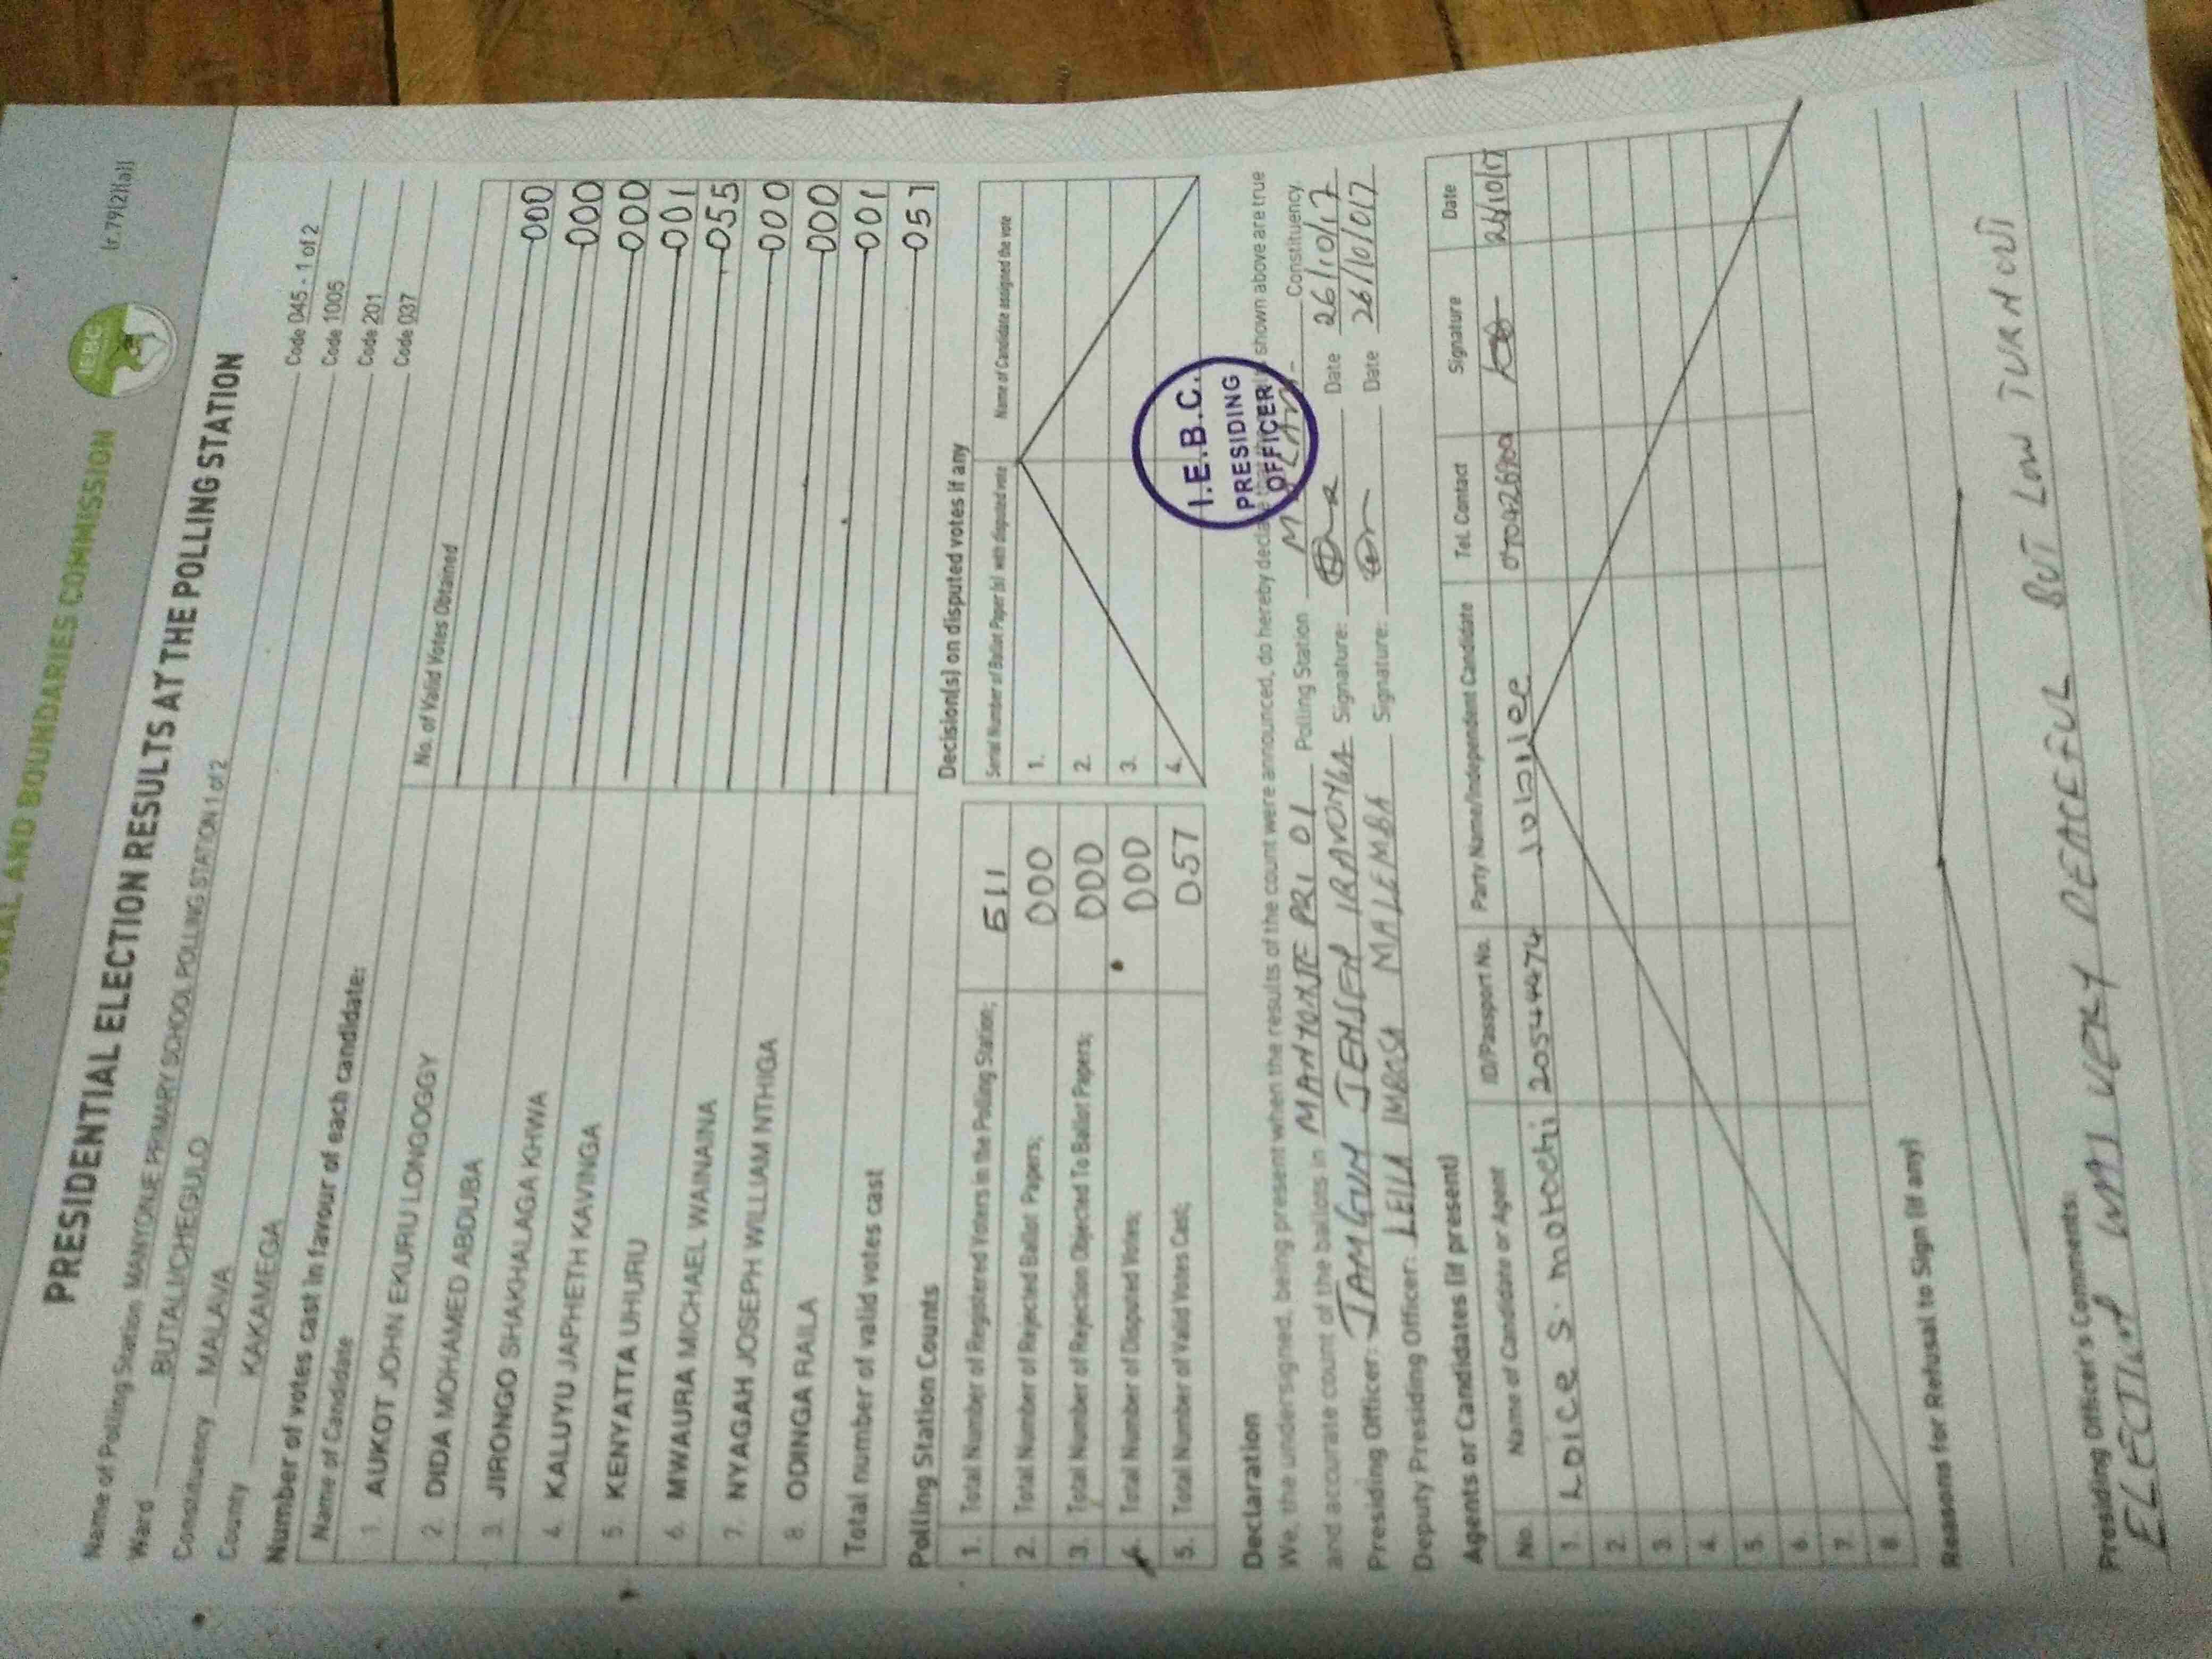 AND BOUNDARIES COMMISSION
IEBC
(r.79(2)(a))
PRESIDENTIAL ELECTION RESULTS AT THE POLLING STATION
Name of Polling Station MANYONJE PRIMARY SCHOOL POLLING STATION 1 of 2 Code 045 - 1 of 2
Ward BUTALI/CHEGULO Code 1005
Constituency MALAVA Code 201
County KAKAMEGA Code 037
Number of votes cast in favour of each candidate:
Name of Candidate No. of Valid Votes Obtained
1. AUKOT JOHN EKURU LONGOGGY 000
2. DIDA MOHAMED ABDUBA 000
3. JIRONGO SHAKHALAGA KHWA 000
4. KALUYU JAPHETH KAVINGA 001
5. KENYATTA UHURU 055
6. MWAURA MICHAEL WAINAINA 000
7. NYAGAH JOSEPH WILLIAM NTHIGA 000
8. ODINGA RAILA 001
Total number of valid votes cast 057
Polling Station Counts
1. Total Number of Registered Voters in the Polling Station; 511
2. Total Number of Rejected Ballot Papers; 000
3. Total Number of Rejection Objected To Ballot Papers; 000
4. Total Number of Disputed Votes; 000
5. Total Number of Valid Votes Cast; 057
Decision(s) on disputed votes if any
Serial Number of Ballot Paper (s) with disputed vote Name of Candidate assigned the vote
1.
2.
3.
4.
I.E.B.C.
PRESIDING
OFFICER
Declaration
We, the undersigned, being present when the results of the count were announced, do hereby declare shown above are true
and accurate count of the ballots in MANYONJE PRI 01 Polling Station Constituency.
Presiding Officer: JENSEN Signature: Date 26/10/17
Deputy Presiding Officer: LEILA MALEMBA Signature: Date 26/10/017
Agents or Candidates (if present)
No. Name of Candidate or Agent ID/Passport No. Party Name/Independent Candidate Tel. Contact Signature Date
1. LOICE S. 20544474 Jubilee 26/10/17
2.
3.
4.
5.
6.
7.
8.
Reasons for Refusal to Sign (if any)
Presiding Officer's Comments:
ELECTION WAS VERY PEACEFUL BUT LOW TURN OUT